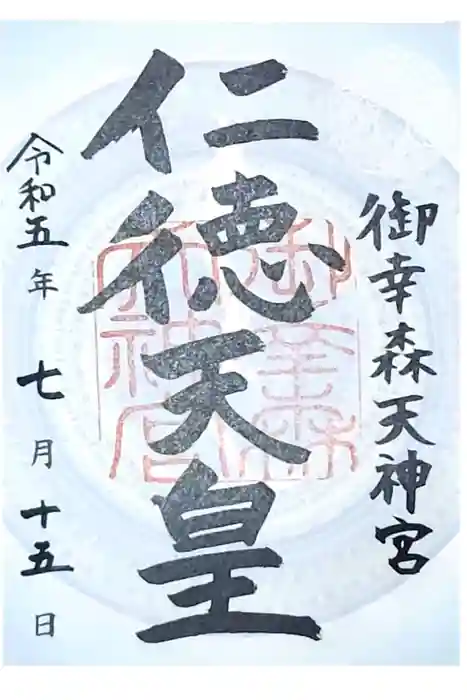 御幸森天神宮
仁徳天皇
令和五年 七月十五日